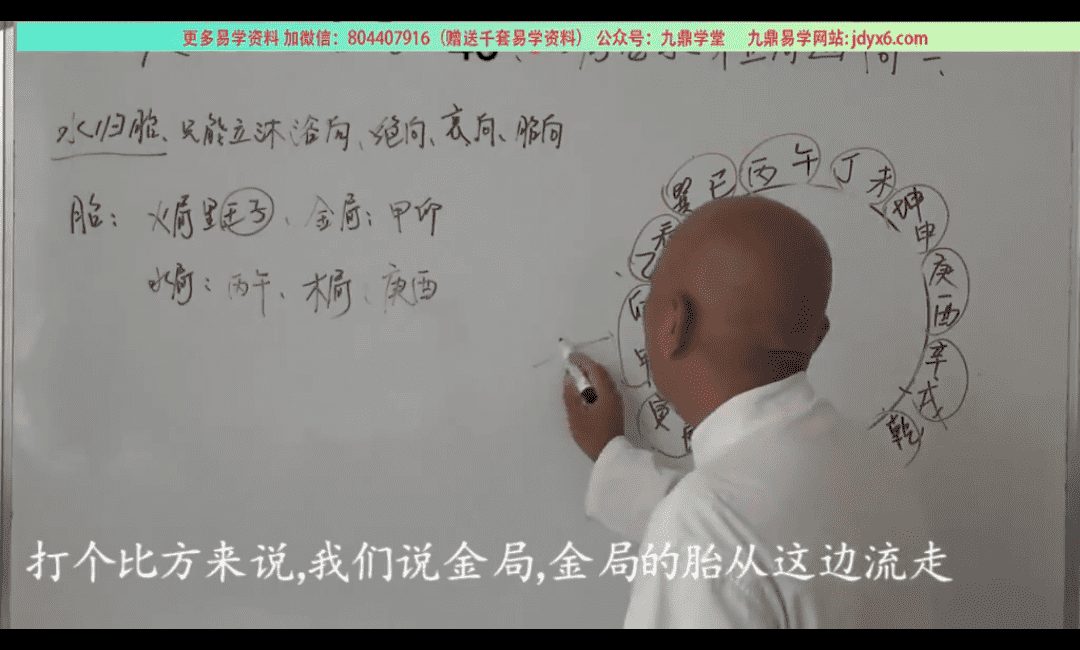 更多易学资料 加微信：804407916（赠送千套易学资料） 公众号：九鼎学堂 九鼎易学网站: jdyx6.com
水归胎、只能立沐浴向、绝向、衰向、胎向
胎： 火局壬子、金局：甲卯
水局：丙午、木局：庚酉
巽巳
丙午
丁未
坤申
庚酉
辛戌
乾
乙
卯
甲
寅
打个比方来说,我们说金局,金局的胎从这边流走